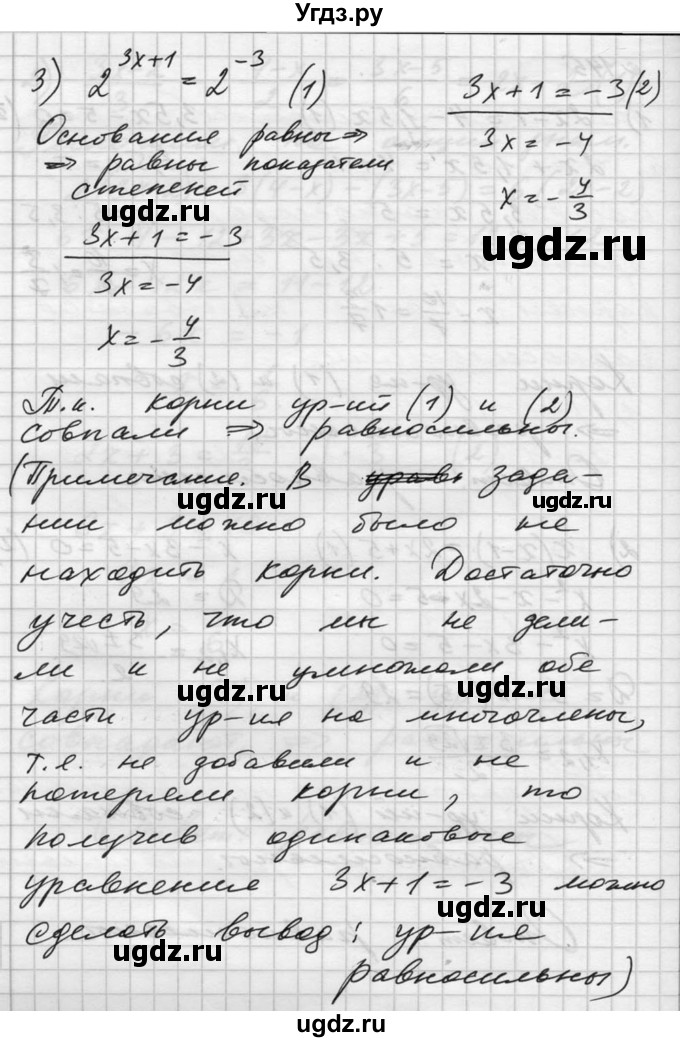 Угдз.ру
3) 2^{3x+1} = 2^{-3} (1)
Основания равны ⇒
⇒ равны показатели
степеней
ugdz.ru
3x+1 = -3
3x = -4
x = -4/3
3x+1 = -3 (2)
3x = -4
x = -4/3
ugdz.ru
Т.к. корни ур-ий (1) и (2)
совпали ⇒ равносильны.
ugdz.ru
(Примечание. В урав зада-
ugdz.ru
нии можно было не
находить корни. Достаточно
ugdz.ru
учесть, что мы не дели-
ли и не умножали обе
ugdz.ru ugdz.ru
части ур-ия на многочлены,
т.е. не добавили и не
потеряли корни, то
ugdz.ru
получив одинаковые
уравнения 3x+1 = -3 можно
ugdz.ru
сделать вывод: ур-ия
ugdz.ru
равносильны)
ugdz.ru